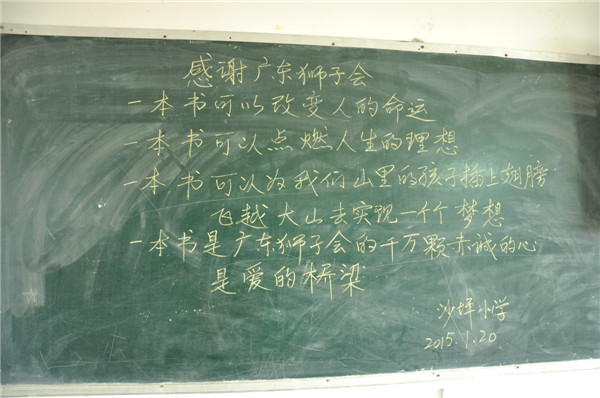 感谢广东狮子会
一本书可以改变人的命运
一本书可以点燃人生的理想
一本书可以为我们山里的孩子插上翅膀
飞越大山去实现一个个梦想
一本书是广东狮子会的千万颗赤诚的心
是爱的桥梁
沙坪小学
2015.1.20